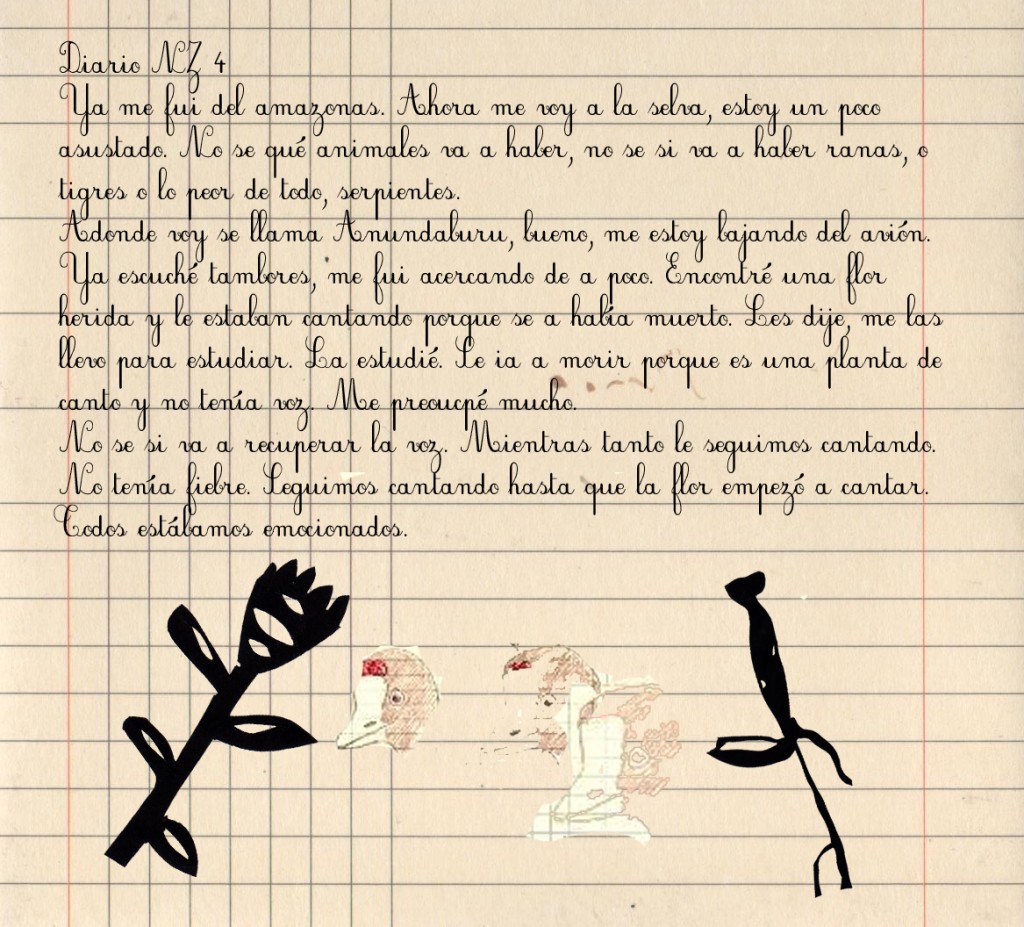 Diario NZ 4
Ya me fui del amazonas. Ahora me voy a la selva, estoy un poco
asustado. No se qué animales va a haber, no se si va a haber ranas, o
tigres o lo peor de todo, serpientes.
Adonde voy se llama Anundaburu, bueno, me estoy bajando del avión.
Ya escuché tambores, me fui acercando de a poco. Encontré una flor
herida y le estaban cantando porque se a había muerto. Les dije, me las
llevo para estudiar. La estudié. Se ia a morir porque es una planta de
canto y no tenía voz. Me preoucpé mucho.
No se si va a recuperar la voz. Mientras tanto le seguimos cantando.
No tenía fiebre. Seguimos cantando hasta que la flor empezó a cantar.
Todos estábamos emocionados.